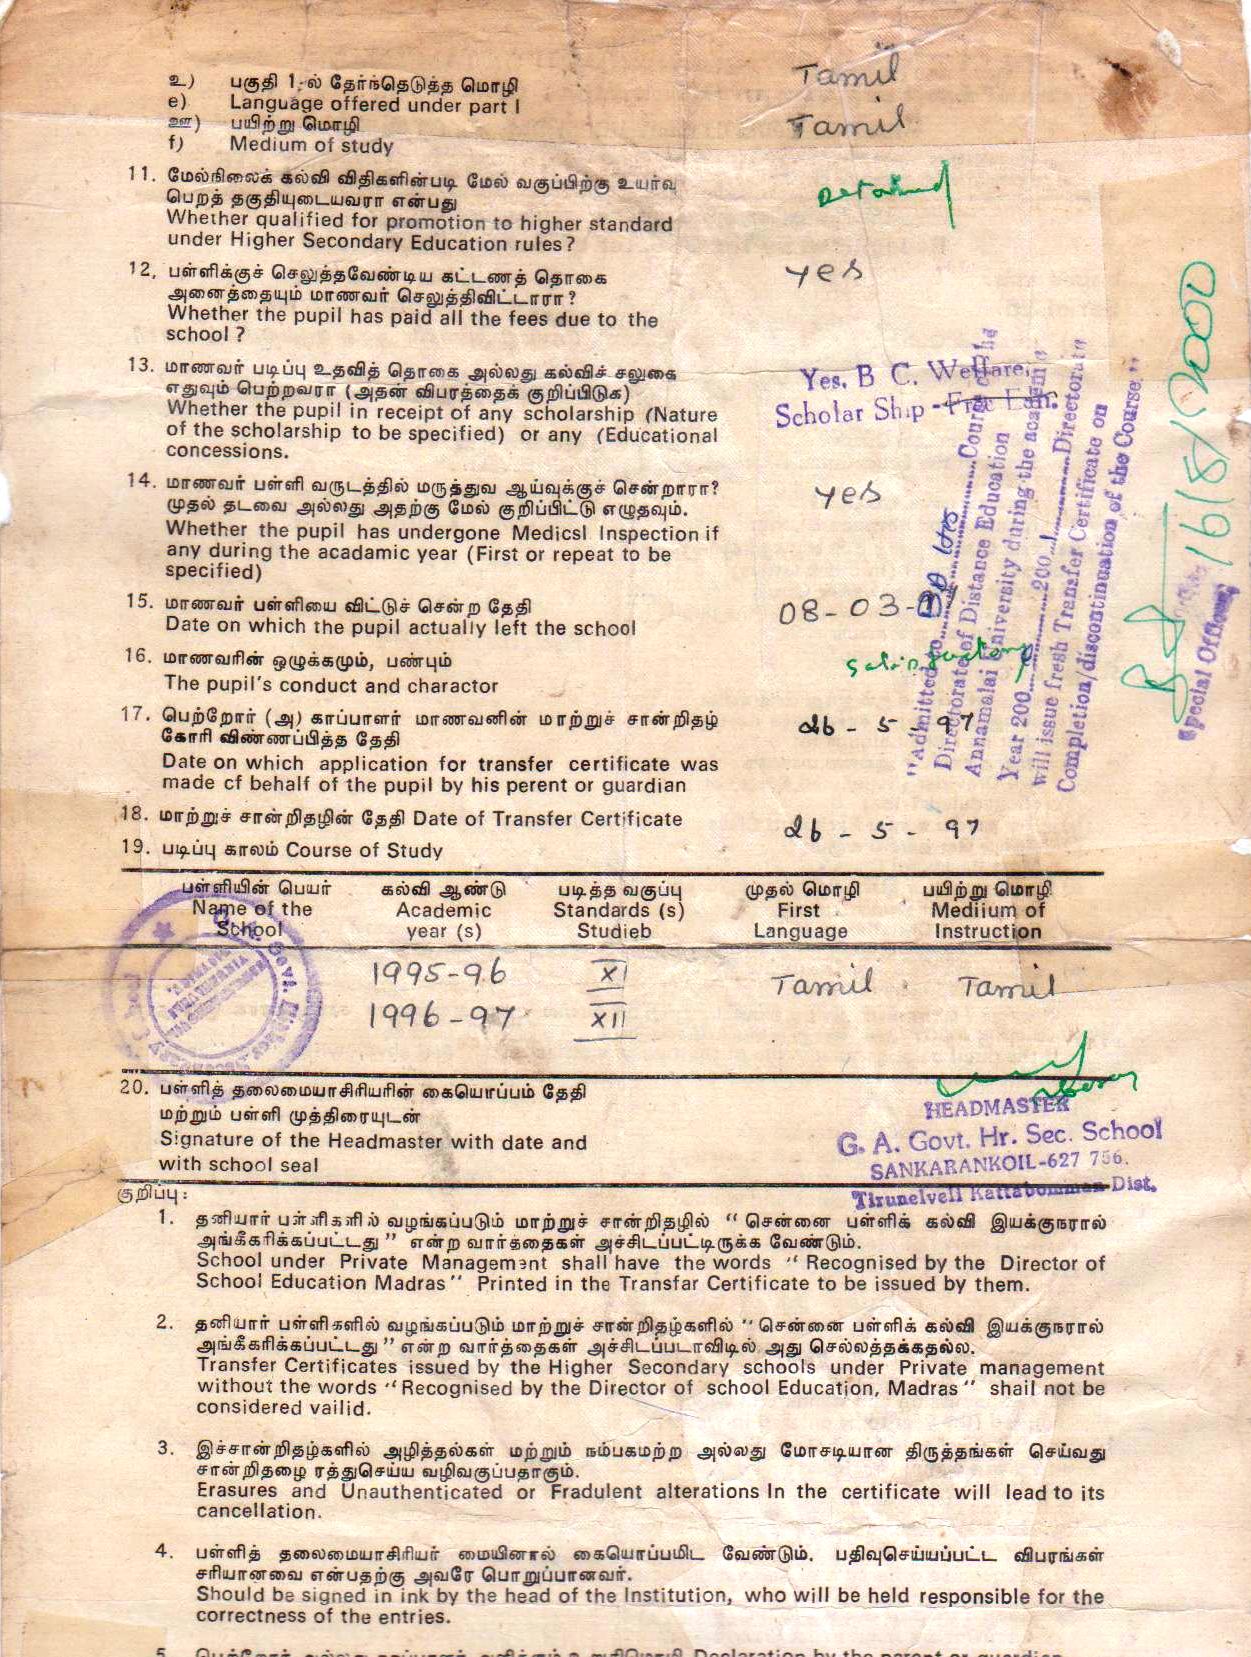 உ) பகுதி 1-ல் தேர்ந்தெடுத்த மொழி
e) Language offered under part I Tamil
ஊ) பயிற்று மொழி
f) Medium of study Tamil
11. மேல்நிலைக் கல்வி விதிகளின்படி மேல் வகுப்பிற்கு உயர்வு
பெறத் தகுதியுடையவரா என்பது
Whether qualified for promotion to higher standard
under Higher Secondary Education rules?
12, பள்ளிக்குச் செலுத்தவேண்டிய கட்டணத் தொகை yes
அனைத்தையும் மாணவர் செலுத்திவிட்டாரா?
Whether the pupil has paid all the fees due to the
school ?
13. மாணவர் படிப்பு உதவித் தொகை அல்லது கல்விச் சலுகை
எதுவும் பெற்றவரா (அதன் விபரத்தைக் குறிப்பிடுக)
Whether the pupil in receipt of any scholarship (Nature
of the scholarship to be specified) or any (Educational
concessions.
Yes. B C. Welfare,
Scholar Ship - Free Edn.
14. மாணவர் பள்ளி வருடத்தில் மருத்துவ ஆய்வுக்குச் சென்றாரா? yes
முதல் தடவை அல்லது அதற்கு மேல் குறிப்பிட்டு எழுதவும்.
Whether the pupil has undergone Medicsl Inspection if
any during the acadamic year (First or repeat to be
specified)
15. மாணவர் பள்ளியை விட்டுச் சென்ற தேதி 08-03-
Date on which the pupil actually left the school
16. மாணவரின் ஒழுக்கமும், பண்பும்
The pupil's conduct and charactor
17. பெற்றோர் (அ) காப்பாளர் மாணவனின் மாற்றுச் சான்றிதழ் 26 - 5 - 97
கோரி விண்ணப்பித்த தேதி
Date on which application for transfer certificate was
made cf behalf of the pupil by his perent or guardian
18. மாற்றுச் சான்றிதழின் தேதி Date of Transfer Certificate 26 - 5 - 97
19. படிப்பு காலம் Course of Study
"Admitted to Course of the
Directorate of Distance Education
Annamalai University during the academic
Year 200 200 Directorate
will issue fresh Transfer Certificate on
Completion/discontinuation of the Course."
Special Officer
பள்ளியின் பெயர் கல்வி ஆண்டு படித்த வகுப்பு முதல் மொழி பயிற்று மொழி
Name of the Academic Standards (s) First Mediium of
School year (s) Studieb Language Instruction
1995-96 XI Tamil Tamil
1996-97 XII
20. பள்ளித் தலைமையாசிரியரின் கையொப்பம் தேதி
மற்றும் பள்ளி முத்திரையுடன்
Signature of the Headmaster with date and
with school seal
HEADMASTER
G. A. Govt. Hr. Sec. School
SANKARANKOIL-627 756.
Tirunelveli Kattabomman Dist.
குறிப்பு:
1. தனியார் பள்ளிகளில் வழங்கப்படும் மாற்றுச் சான்றிதழில் " சென்னை பள்ளிக் கல்வி இயக்குநரால்
அங்கீகரிக்கப்பட்டது " என்ற வார்த்தைகள் அச்சிடப்பட்டிருக்க வேண்டும்.
School under Private Management shall have the words " Recognised by the Director of
School Education Madras" Printed in the Transfar Certificate to be issued by them.
2. தனியார் பள்ளிகளில் வழங்கப்படும் மாற்றுச் சான்றிதழ்களில் " சென்னை பள்ளிக் கல்வி இயக்குநரால்
அங்கீகரிக்கப்பட்டது " என்ற வார்த்தைகள் அச்சிடப்படாவிடில் அது செல்லத்தக்கதல்ல.
Transfer Certificates issued by the Higher Secondary schools under Private management
without the words "Recognised by the Director of school Education, Madras" shail not be
considered vailid.
3. இச்சான்றிதழ்களில் அழித்தல்கள் மற்றும் நம்பகமற்ற அல்லது மோசடியான திருத்தங்கள் செய்வது
சான்றிதழை ரத்துசெய்ய வழிவகுப்பதாகும்.
Erasures and Unauthenticated or Fradulent alterations In the certificate will lead to its
cancellation.
4. பள்ளித் தலைமையாசிரியர் மையினால் கையொப்பமிட வேண்டும். பதிவுசெய்யப்பட்ட விபரங்கள்
சரியானவை என்பதற்கு அவரே பொறுப்பானவர்.
Should be signed in ink by the head of the Institution, who will be held responsible for the
correctness of the entries.
5. பெற்றோர் அல்லது காப்பாளர் அளிக்கும் உறுதிமொழி Declaration by the parent or guardian